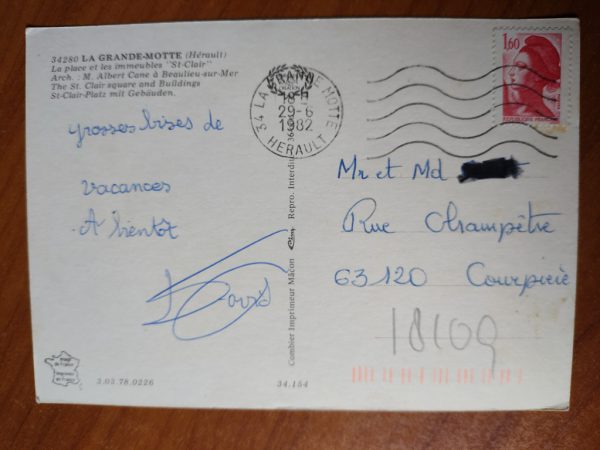 34280 LA GRANDE-MOTTE (Hérault)
La place et les immeubles "St-Clair"
Arch. : M. Albert Cane à Beaulieu-sur-Mer
The St. Clair square and Buildings
St-Clair-Platz mit Gebäuden.
34 LA GRANDE MOTTE
18 H
29-6
1982
HERAULT
1,60
REPUBLIQUE FRANCAISE
Grosses bises de
vacances
A bientôt
Mr et Md
Rue Champêtre
63120 Courpière
18109
Combier Imprimeur Mâcon
Repro. Interdite
3.03.78.0226
34.154
Image
de France
Imprimée
en France